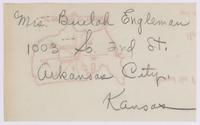 Mrs. Beulah Engleman
1003 So. 2nd St.
Arkansas City
Kansas